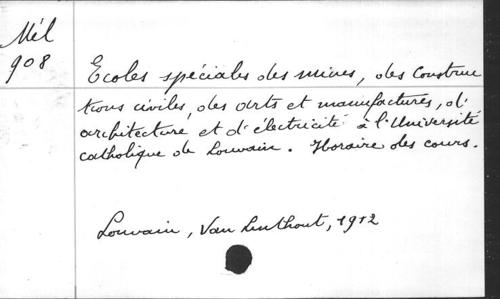 Mél
908
Ecoles spéciales des mines, des Construc
tions civiles, des arts et manufactures, d'
architecture et d'électricité à l'Université
catholique de Louvain. Horaire des cours.
Louvain, Van Linthout, 1912